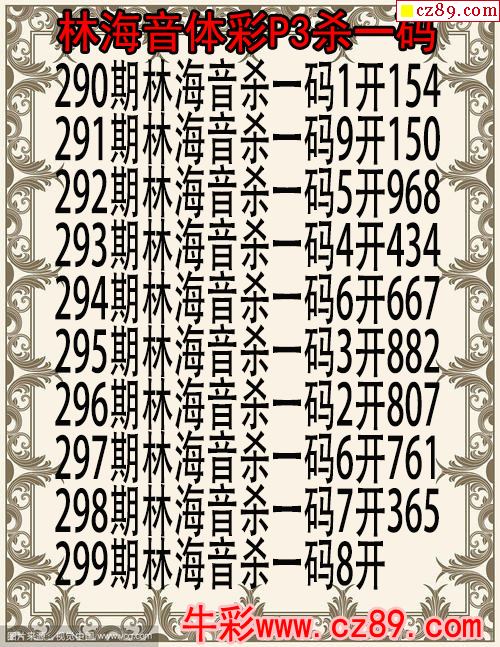 cz89.com
林海音体彩P3杀一码
290期林海音杀一码1开154
291期林海音杀一码9开150
292期林海音杀一码5开968
293期林海音杀一码4开434
294期林海音杀一码6开667
295期林海音杀一码3开882
296期林海音杀一码2开807
297期林海音杀一码6开761
298期林海音杀一码7开365
299期林海音杀一码8开
牛彩www.cz89.com
图片来源:视觉中国 www.vcg.com